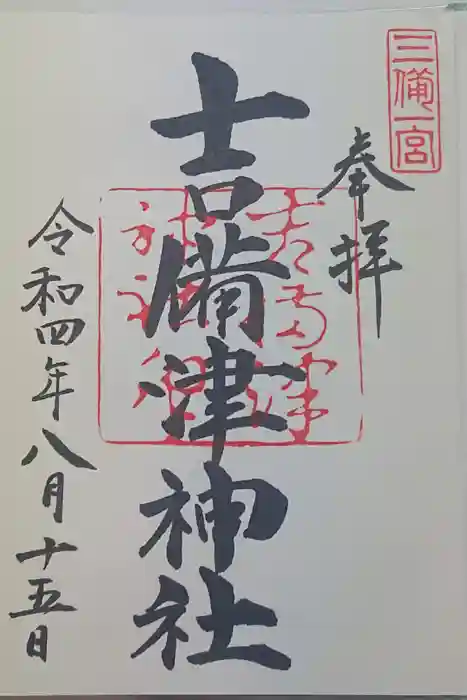 三備一宮
奉拝
吉備津神社
令和四年八月十五日